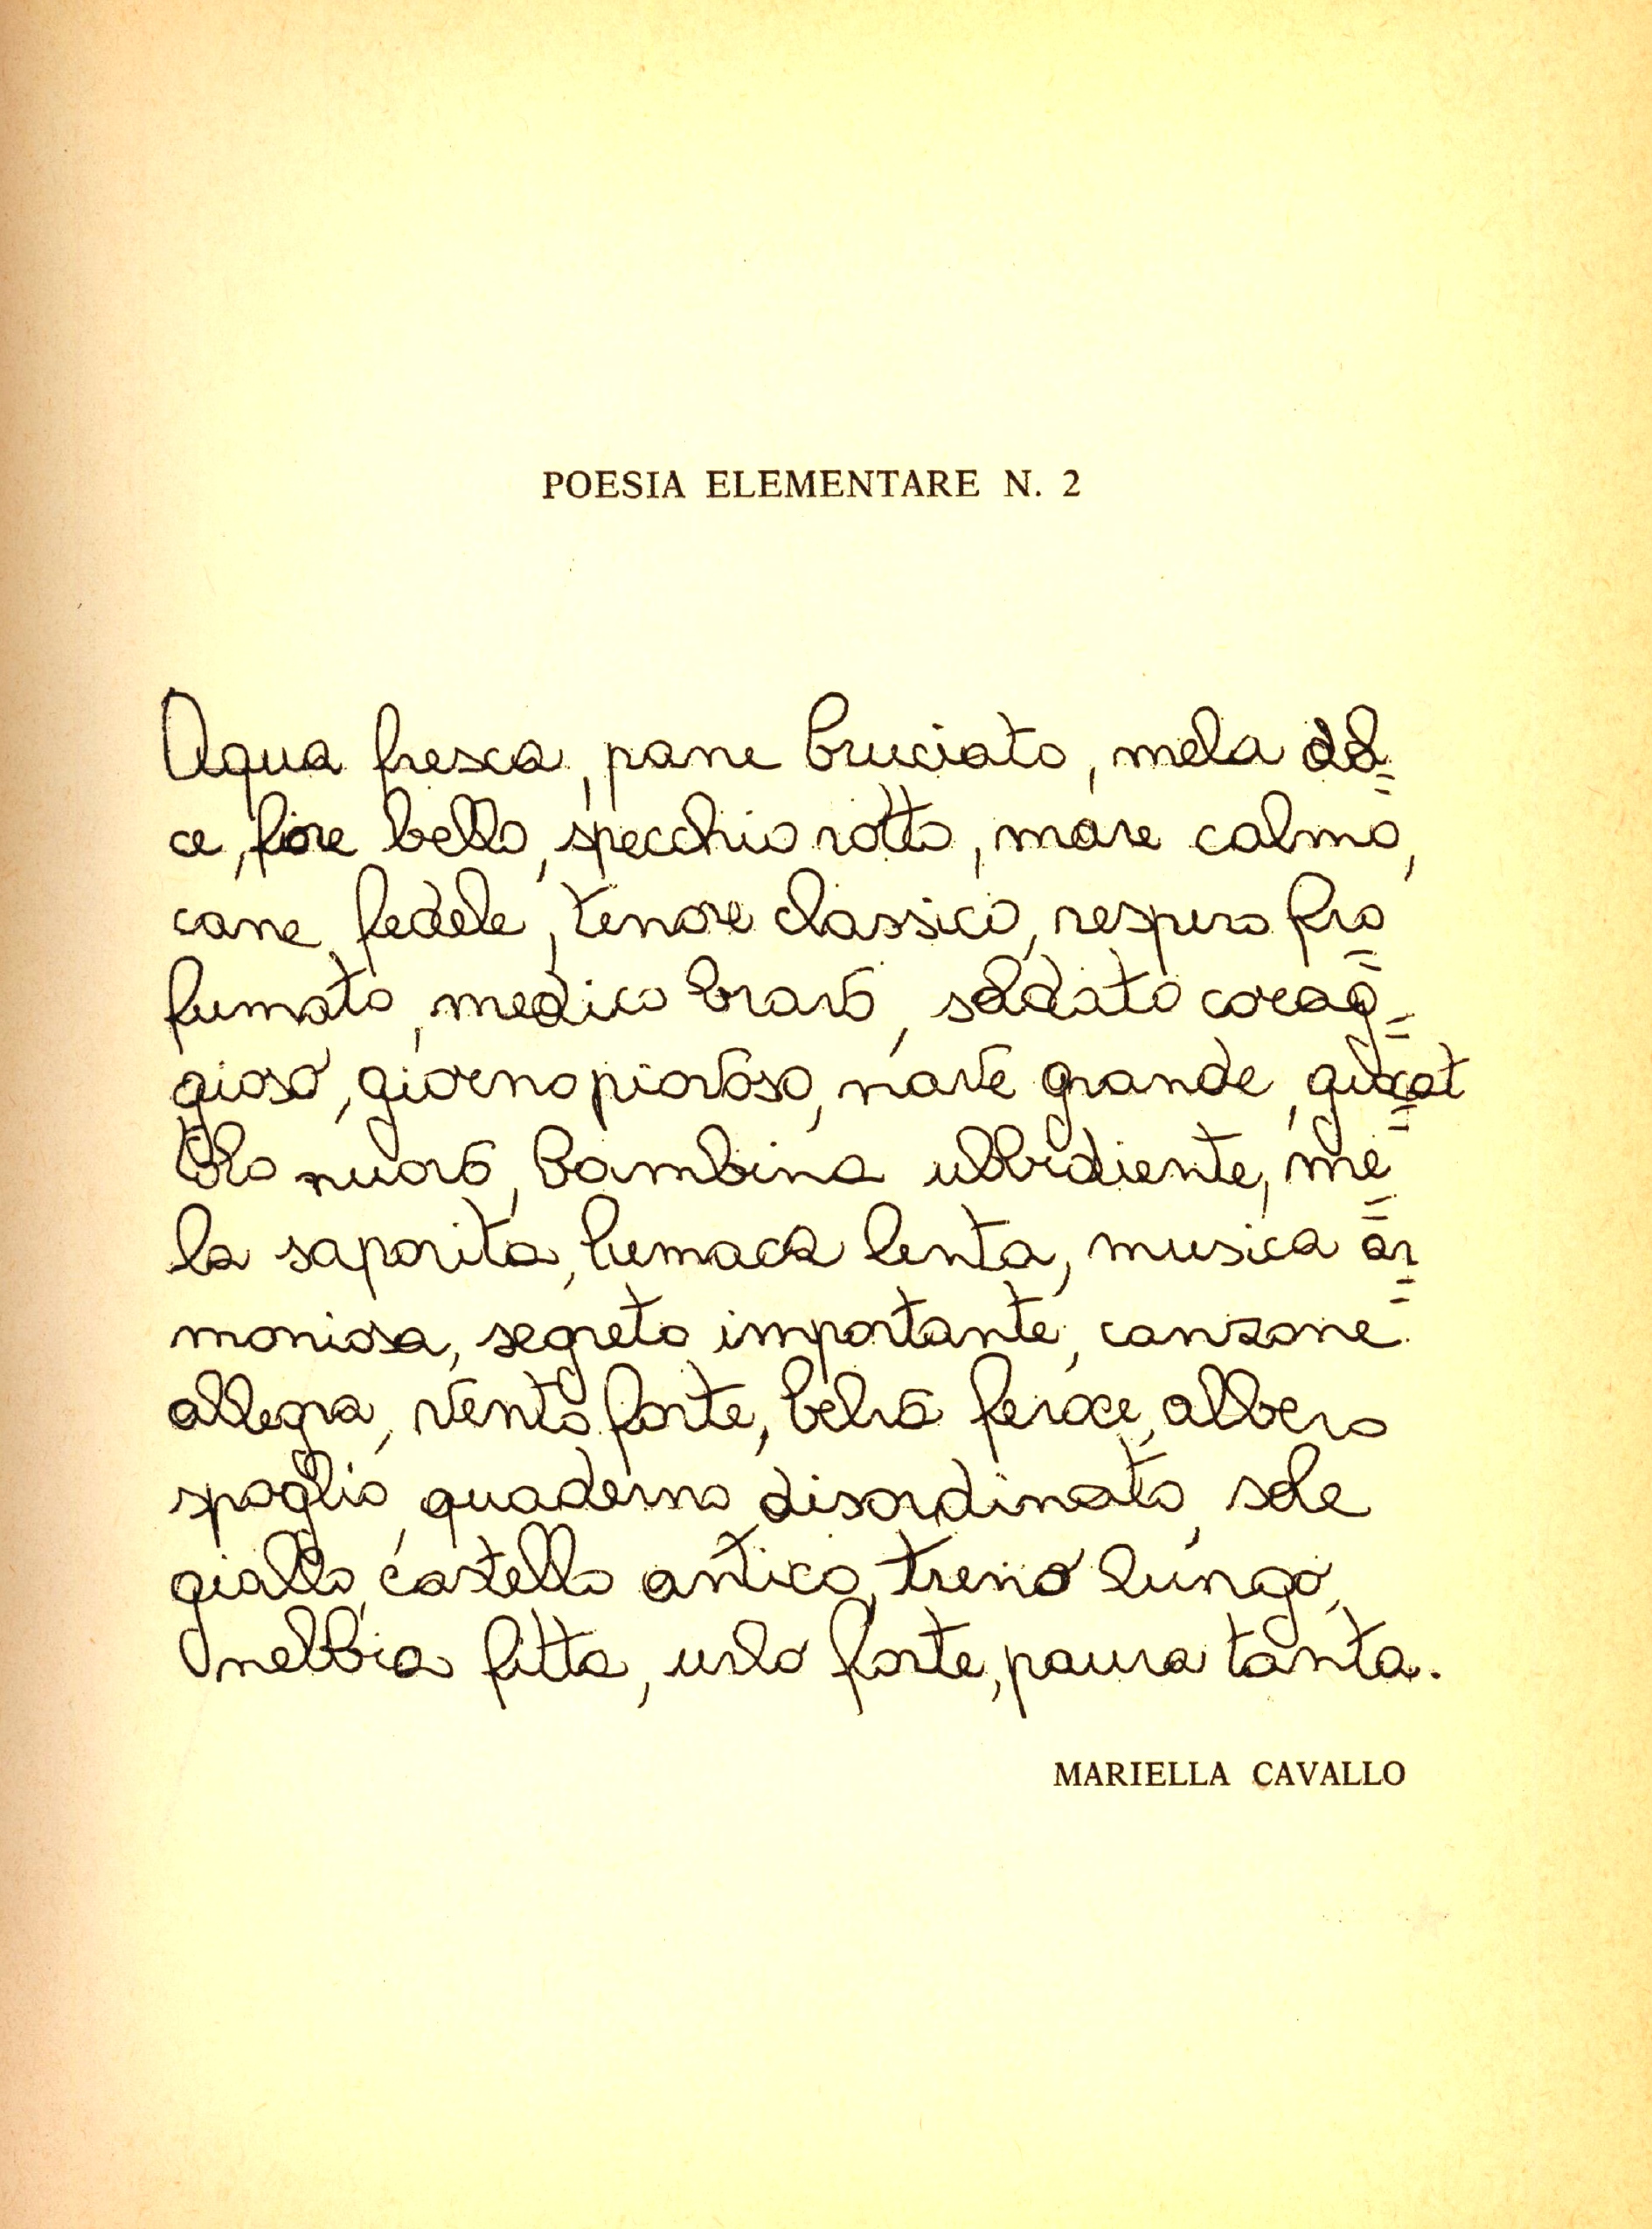 POESIA ELEMENTARE N. 2
Aqua fresca, pane bruciato, mela dol=
ce, fiore bello, specchio rotto, mare calmo,
cane fedele, tenore classico, respiro pro=
fumato, medico bravo, soldato corag=
gioso, giorno piovoso, nave grande, giocat=
tolo nuovo, bambina ubbidiente, me=
la saporita, lumaca lenta, musica ar=
moniosa, segreto importante, canzone
allegra, vento forte, belva feroce, albero
spoglio, quaderno disordinato, sole
giallo, castello antico, treno lungo,
nebbia fitta, urlo forte, paura tanta.
MARIELLA CAVALLO